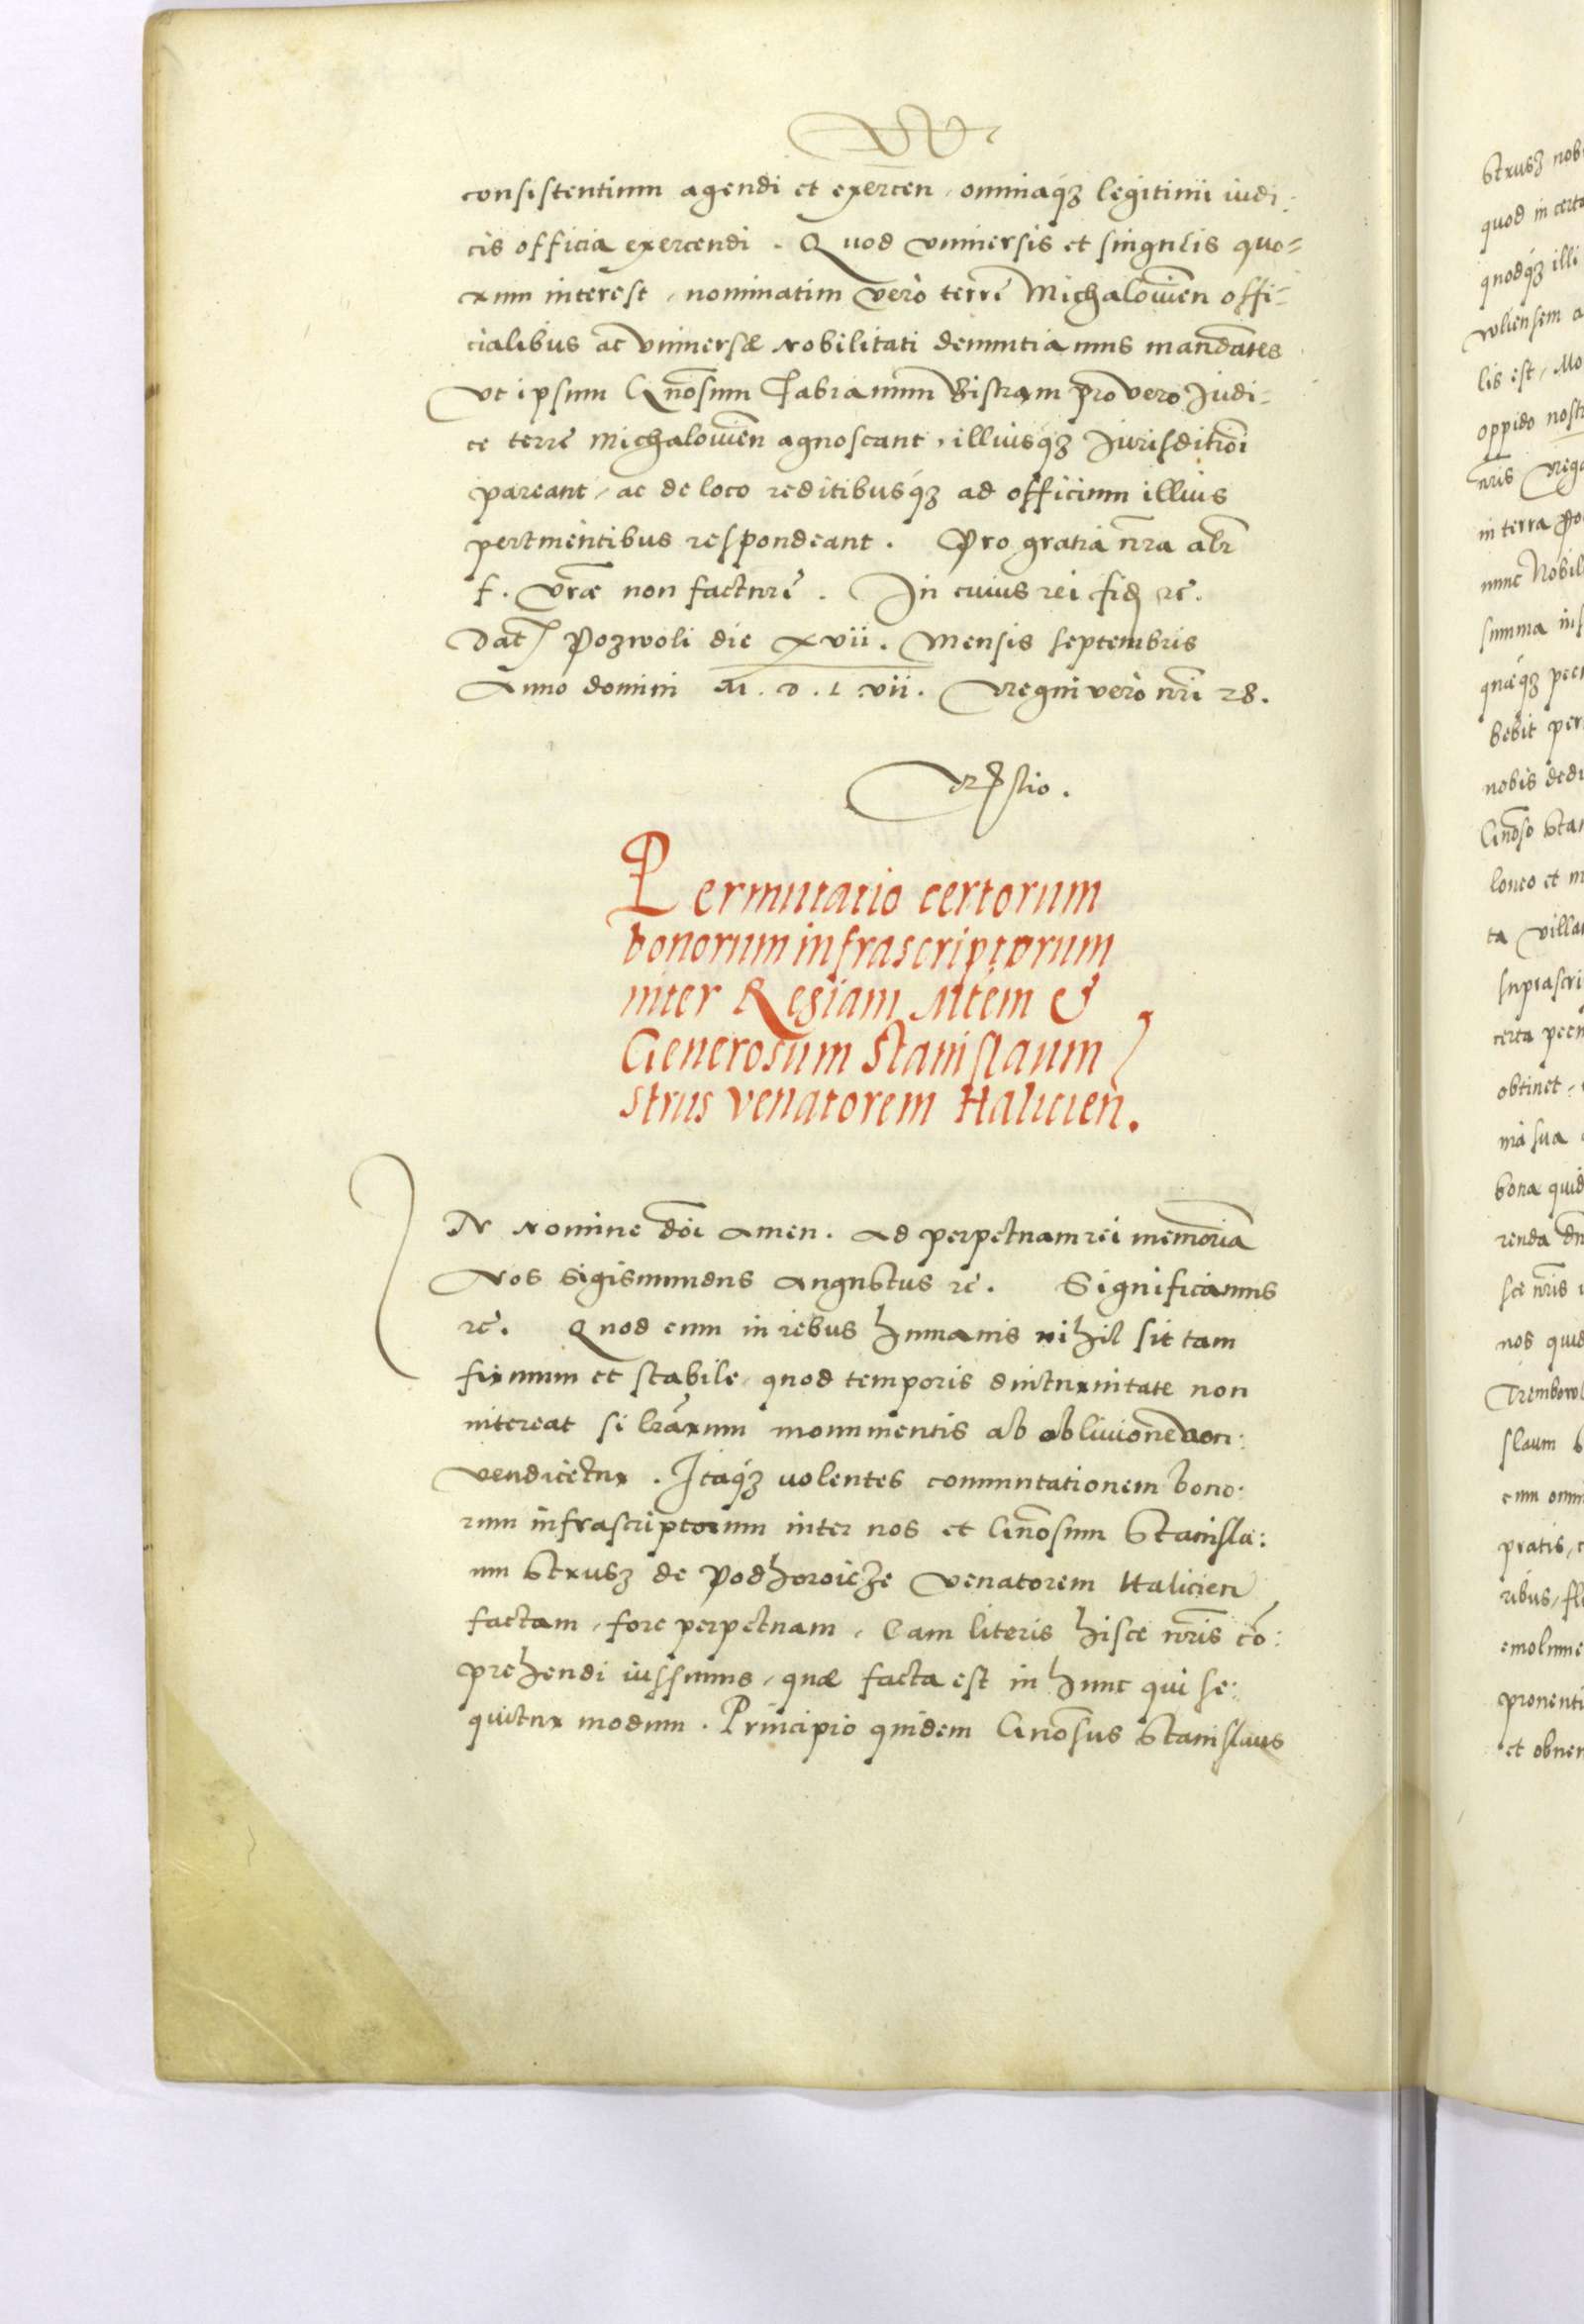 consistentium agendi et exercen, omniaq́ꝫ legitimi iudi:
cis officia exercendi. Quod vniuersis et singulis quo=
rum interest, nominatim vero terrȩ Michalowien̄ offi=
cialibus ac vniuersæ nobilitati denuntiamus mandātes
vt ipsum Gn̄osum Fabianum pro vero Judi=
ce terrȩ Michalowien̄ agnoscant, illiusq́ꝫ Jurisditiōi
pareant, ac de loco reditibusq́ꝫ ad officium illius
pertinentibus respondeant. Pro gratia nr̄a alr̄
f. vr̄æ non facturi. In cuius rei fid rc̄.
Dat Pozwoli die xvii. Mensis septembris
Anno domini M. D. L vii. Regni vero nr̄i 28.
Permutatio certorum
bonorum infrascriptorum
inter Regiam Mtem &
Generosum Stanislaum
Strus venatorem Halicien̄.
IN Nomine dōi Amen. Ad perpetuam rei memoriā
Nos Sigismundus Augustus rc̄. Significamus
rc̄. Quod cum in rebus humanis nihil sit tam
firmum et stabile, quod temporis diuturnitate non
intereat si lr̄arum monumentis ab obliuione non:
vendicetur. Itaq́ꝫ uolentes commutationem bono:
rum infrascriptorum inter nos et Gn̄osum Stanisla:
um Strusz de Podhoroicze venatorem Halicien̄
factam, fore perpetuam, Eam literis hisce nr̄is cō:
prehendi iussimus, quæ facta est in hunc qui se:
quitur modum. Principio quidem Gn̄osus Stanislaus
Strusz
quod in
quodq́ꝫ illi
lis est,
oppido
nr̄is
in terra
nunc
summa
bebit
nobis
Gn̄oso
loneo et
ta
certa
obtinet,
sua
bona
renda
sce nr̄is
nos
slaum
cum
pratis,
ribus,
et